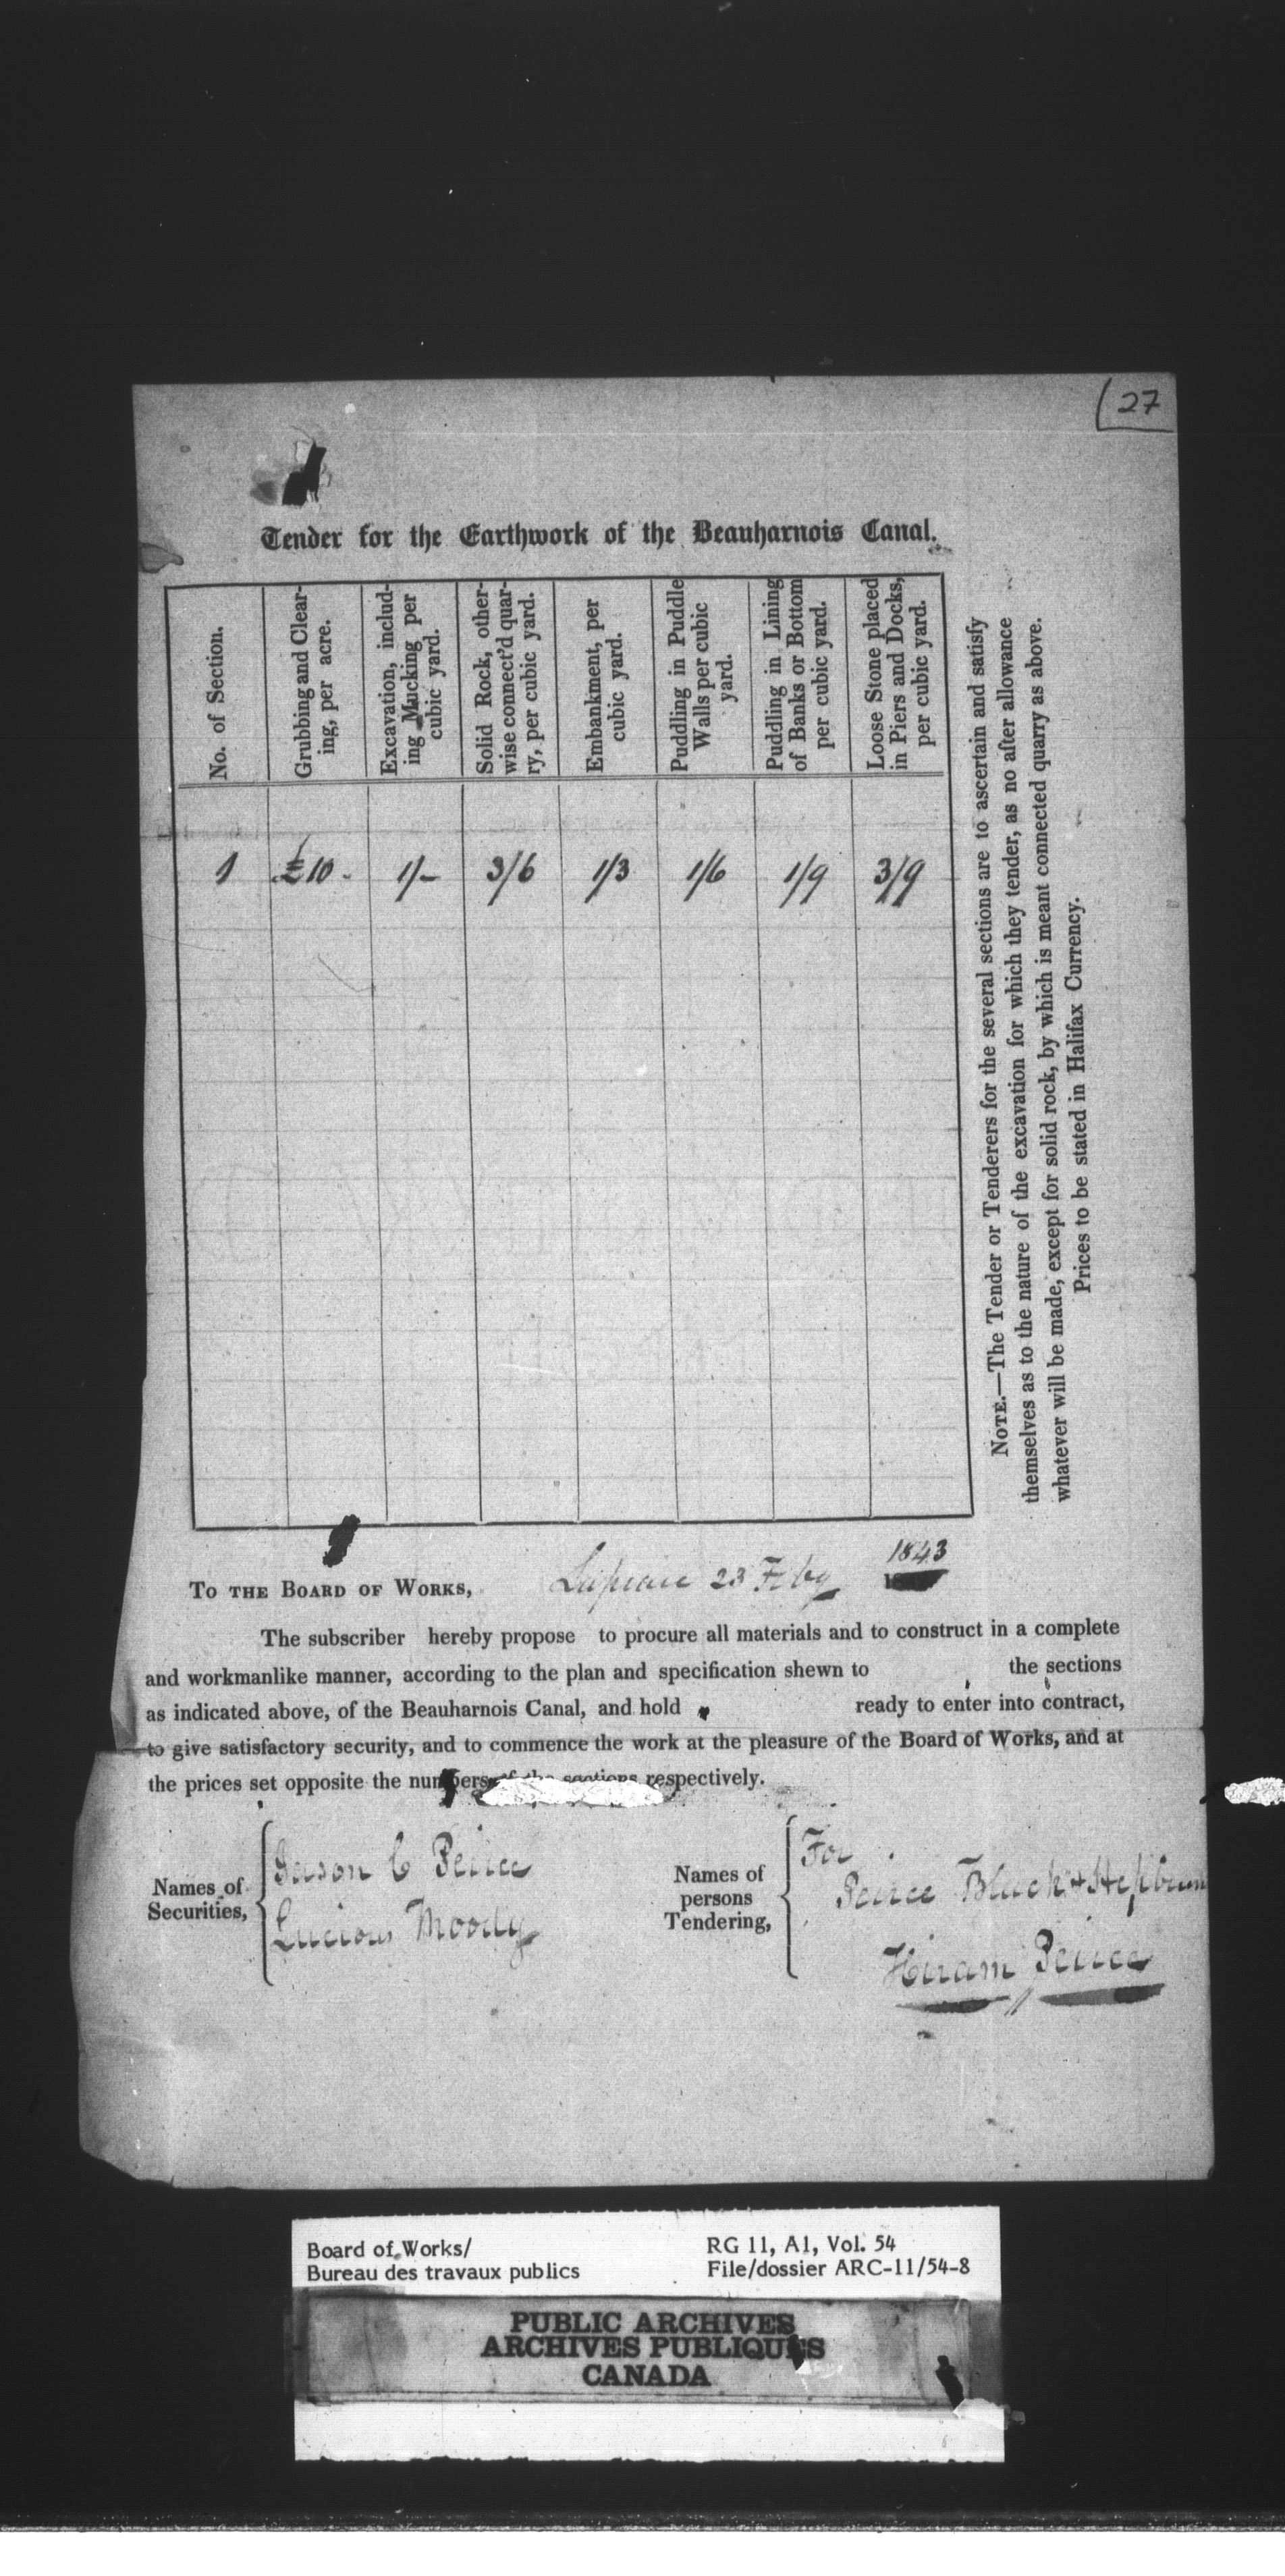 27
Tender for the Earthwork of the Beauharnois Canal.
No. of Section.
Grubbing and Clear-
ing, per acre.
Excavation, includ-
ing Mucking per
cubic yard.
Solid Rock, other-
wise connect'd quar-
ry, per cubic yard.
Embankment, per
cubic yard.
Puddling in Puddle
Walls per cubic
yard.
Puddling in Lining
of Banks or Bottom
per cubic yard.
Loose Stone placed
in Piers and Docks,
per cubic yard.
1 £10 - 1/- 3/6 1/3 1/6 1/9 3/9
NOTE.—The Tender or Tenderers for the several sections are to ascertain and satisfy
themselves as to the nature of the excavation for which they tender, as no after allowance
whatever will be made, except for solid rock, by which is meant connected quarry as above.
Prices to be stated in Halifax Currency.
TO THE BOARD OF WORKS, 23 Feby 1843
The subscriber hereby propose to procure all materials and to construct in a complete
and workmanlike manner, according to the plan and specification shewn to the sections
as indicated above, of the Beauharnois Canal, and hold ready to enter into contract,
to give satisfactory security, and to commence the work at the pleasure of the Board of Works, and at
the prices set opposite the numbers of the sections respectively.
Names of
Securities,
Jason C Peirce
Lucious Moody
Names of
persons
Tendering,
For
Peirce Black & Hepburn
Hiram Peirce
Board of Works/
Bureau des travaux publics
RG 11, A1, Vol. 54
File/dossier ARC-11/54-8
PUBLIC ARCHIVES
ARCHIVES PUBLIQUES
CANADA